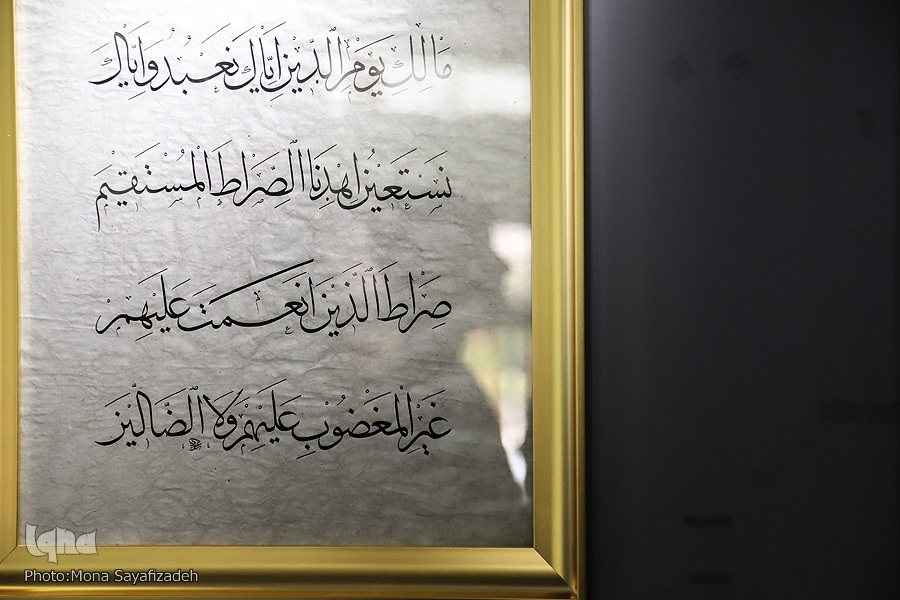 مَالِكِ يَوْمِ الدِّيْنِ اِيَّاكَ نَعْبُدُ وَاِيَّاكَ
نَسْتَعِيْنُ اِهْدِنَا الصِّرَاطَ الْمُسْتَقِيْمَ
صِرَاطَ الَّذِيْنَ اَنْعَمْتَ عَلَيْهِمْ
غَيْرِ الْمَغْضُوْبِ عَلَيْهِمْ وَلَا الضَّالِّيْنَ
Iqna
Photo:Mona Sayafizadeh